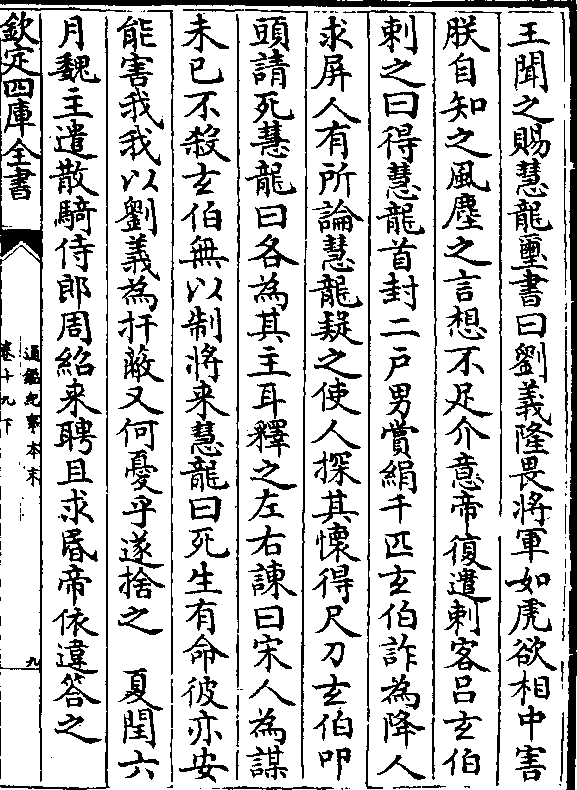 王聞之賜慧龍璽書曰劉義隆畏將軍如虎欲相中害
朕自知之風塵之言想不足介意帝復遣刺客吕玄伯
刺之曰得慧龍首封二戸男賞絹千匹玄伯詐為降人
求屏人有所論慧龍疑之使人探其懷得尺刀玄伯叩
頭請死慧龍曰各為其主耳釋之左右諫曰宋人為謀
未已不殺玄伯無以制將来慧龍曰死生有命彼亦安
能害我我以劉義為扞蔽又何憂乎遂捨之　夏閏六
月魏主遣散騎侍郎周紹来聘且求昏帝依違答之
欽定四庫全書
通鑑紀事本末
卷十九下
九